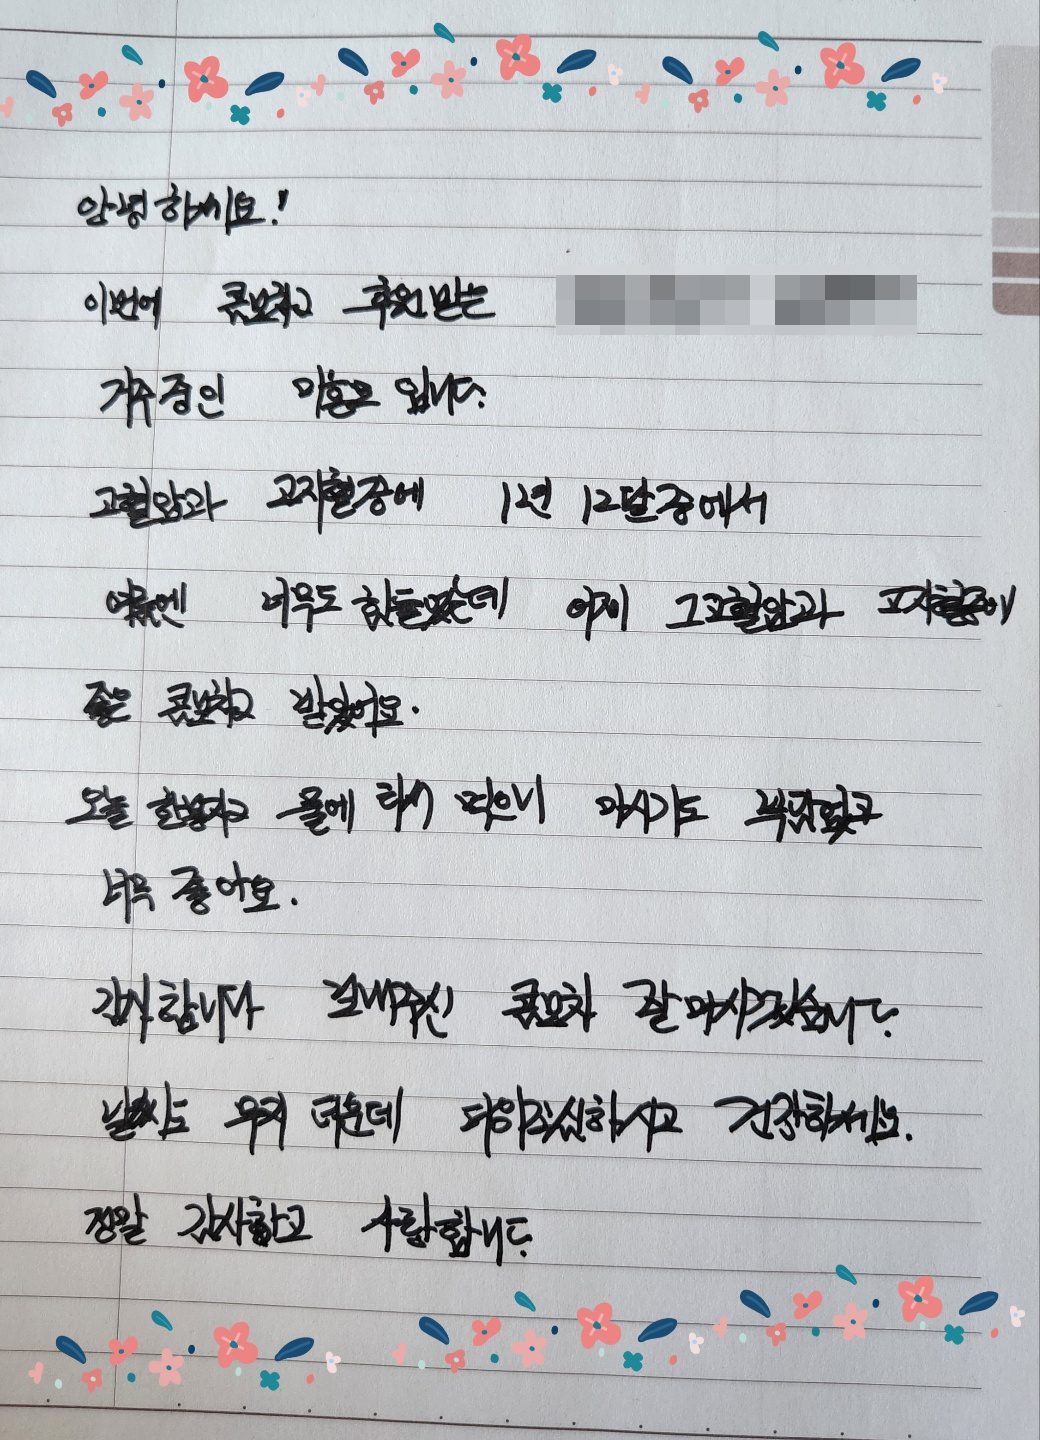 안녕하세요!
이번에 콤보차고 후원 받는
거주중인 미혼모 입니다.
고혈압과 고지혈증에 1년 12달 중에서
여름엔 너무도 힘들었는데 어제 그 고혈압과 고지혈증에
좋은 콤보차고 받았어요.
오늘 한봉지고 물에 타서 먹으니 마시기도 부담없고
너무 좋아요.
감사합니다 보내주신 콤보차 잘 마시겠습니다.
날씨도 무지 더운데 다들 조심하시고 건강하세요.
정말 감사하고 사랑합니다.